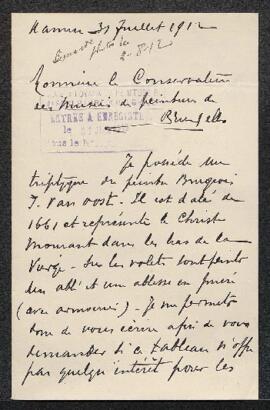 Namur 31 Juillet 1912
2-8-12
Monsieur le Conservateur
des Musées de peinture de
Bruxelles
ENTRÉE & ENREGISTRÉ
le
Je possède un
triptyque du peintre Brugeois
J. Van Oost. Il est daté de
1661 et représente le Christ
Mourant dans les bras de la
Vierge. Sur les volets sont peints
un abbé et une abbesse en prière
(avec armoiries). Je me permets
donc de vous écrire afin de vous
demander si ce tableau n'offre
pas quelqu'intérêt pour les